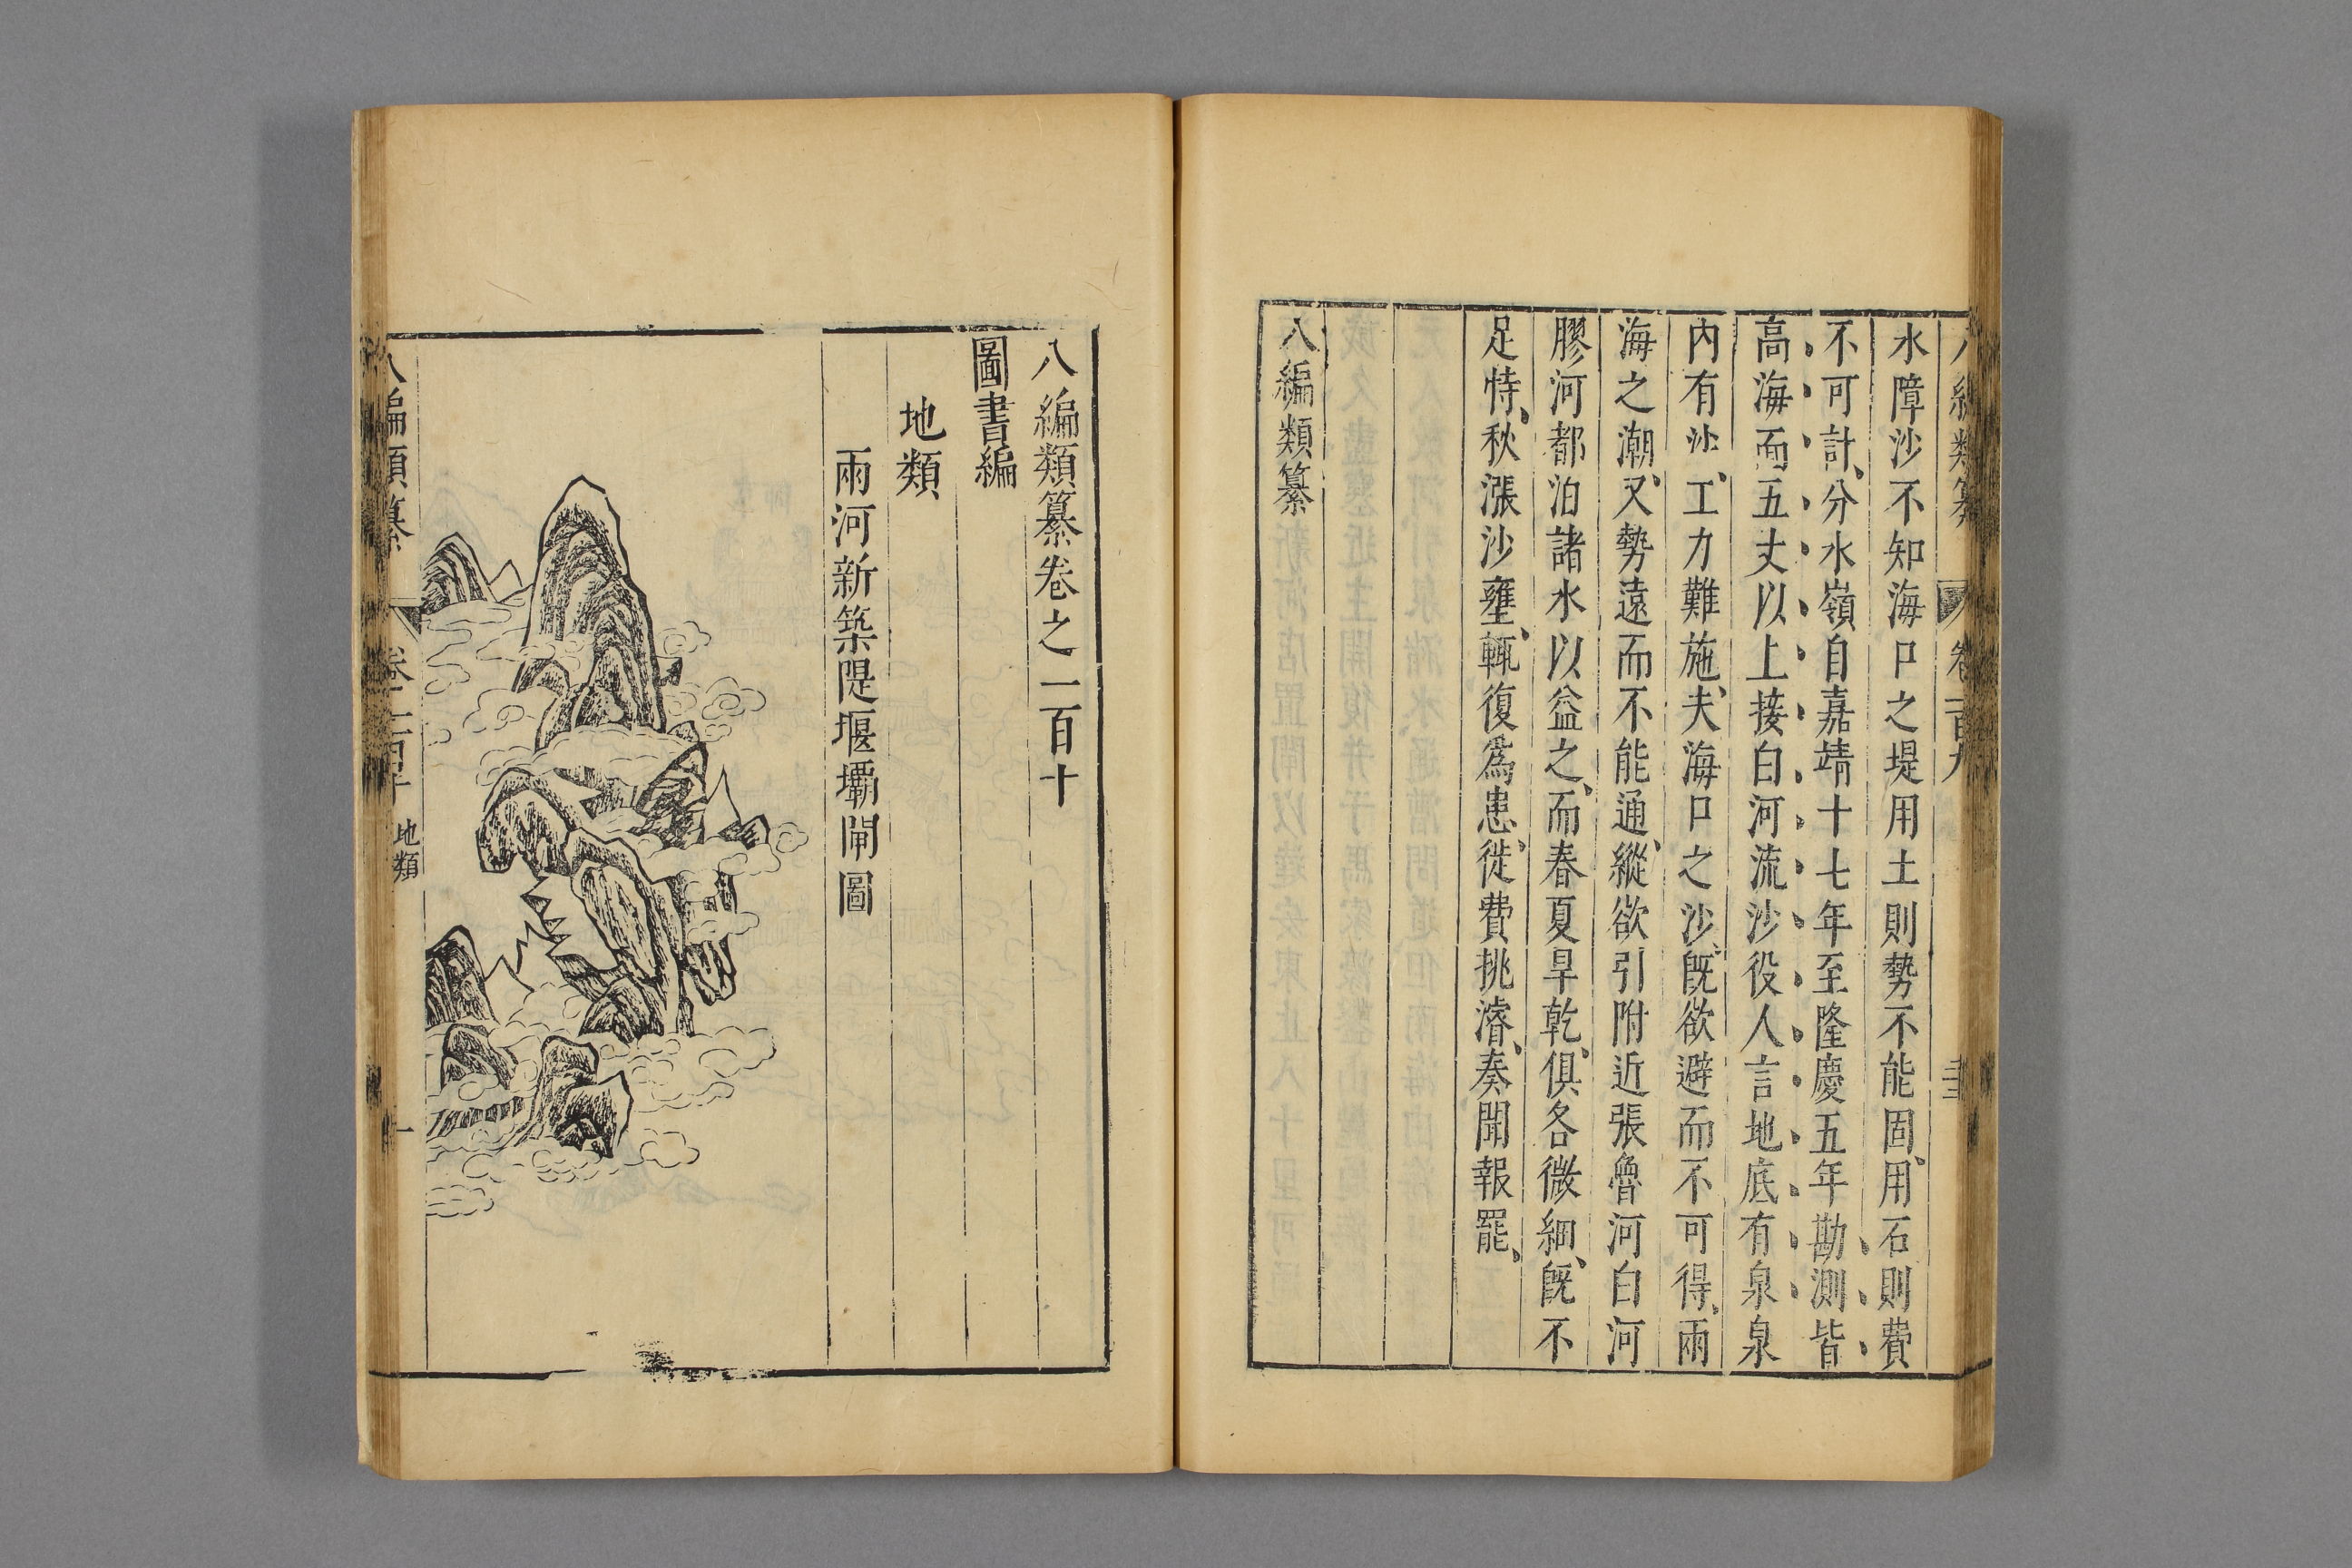 水障沙不知海口之堤用土則勢不能固用石則費
不可計分水嶺自嘉靖十七年至隆慶五年勘測皆
高海面五丈以上接白河流沙役人言地底有泉泉
內有沙工力難施夫海口之沙旣欲避而不可得兩
海之潮又勢遠而不能通縱欲引附近張魯河白河
膠河都泊諸水以益之而春夏旱乾俱各微細旣不
足恃秋漲沙壅輒復爲患徙費挑濬奏聞報罷
八編類纂
八編類纂卷之二百十
圖書編
地類
兩河新築隄堰壩閘圖
八編類纂 卷二百十 地類 一